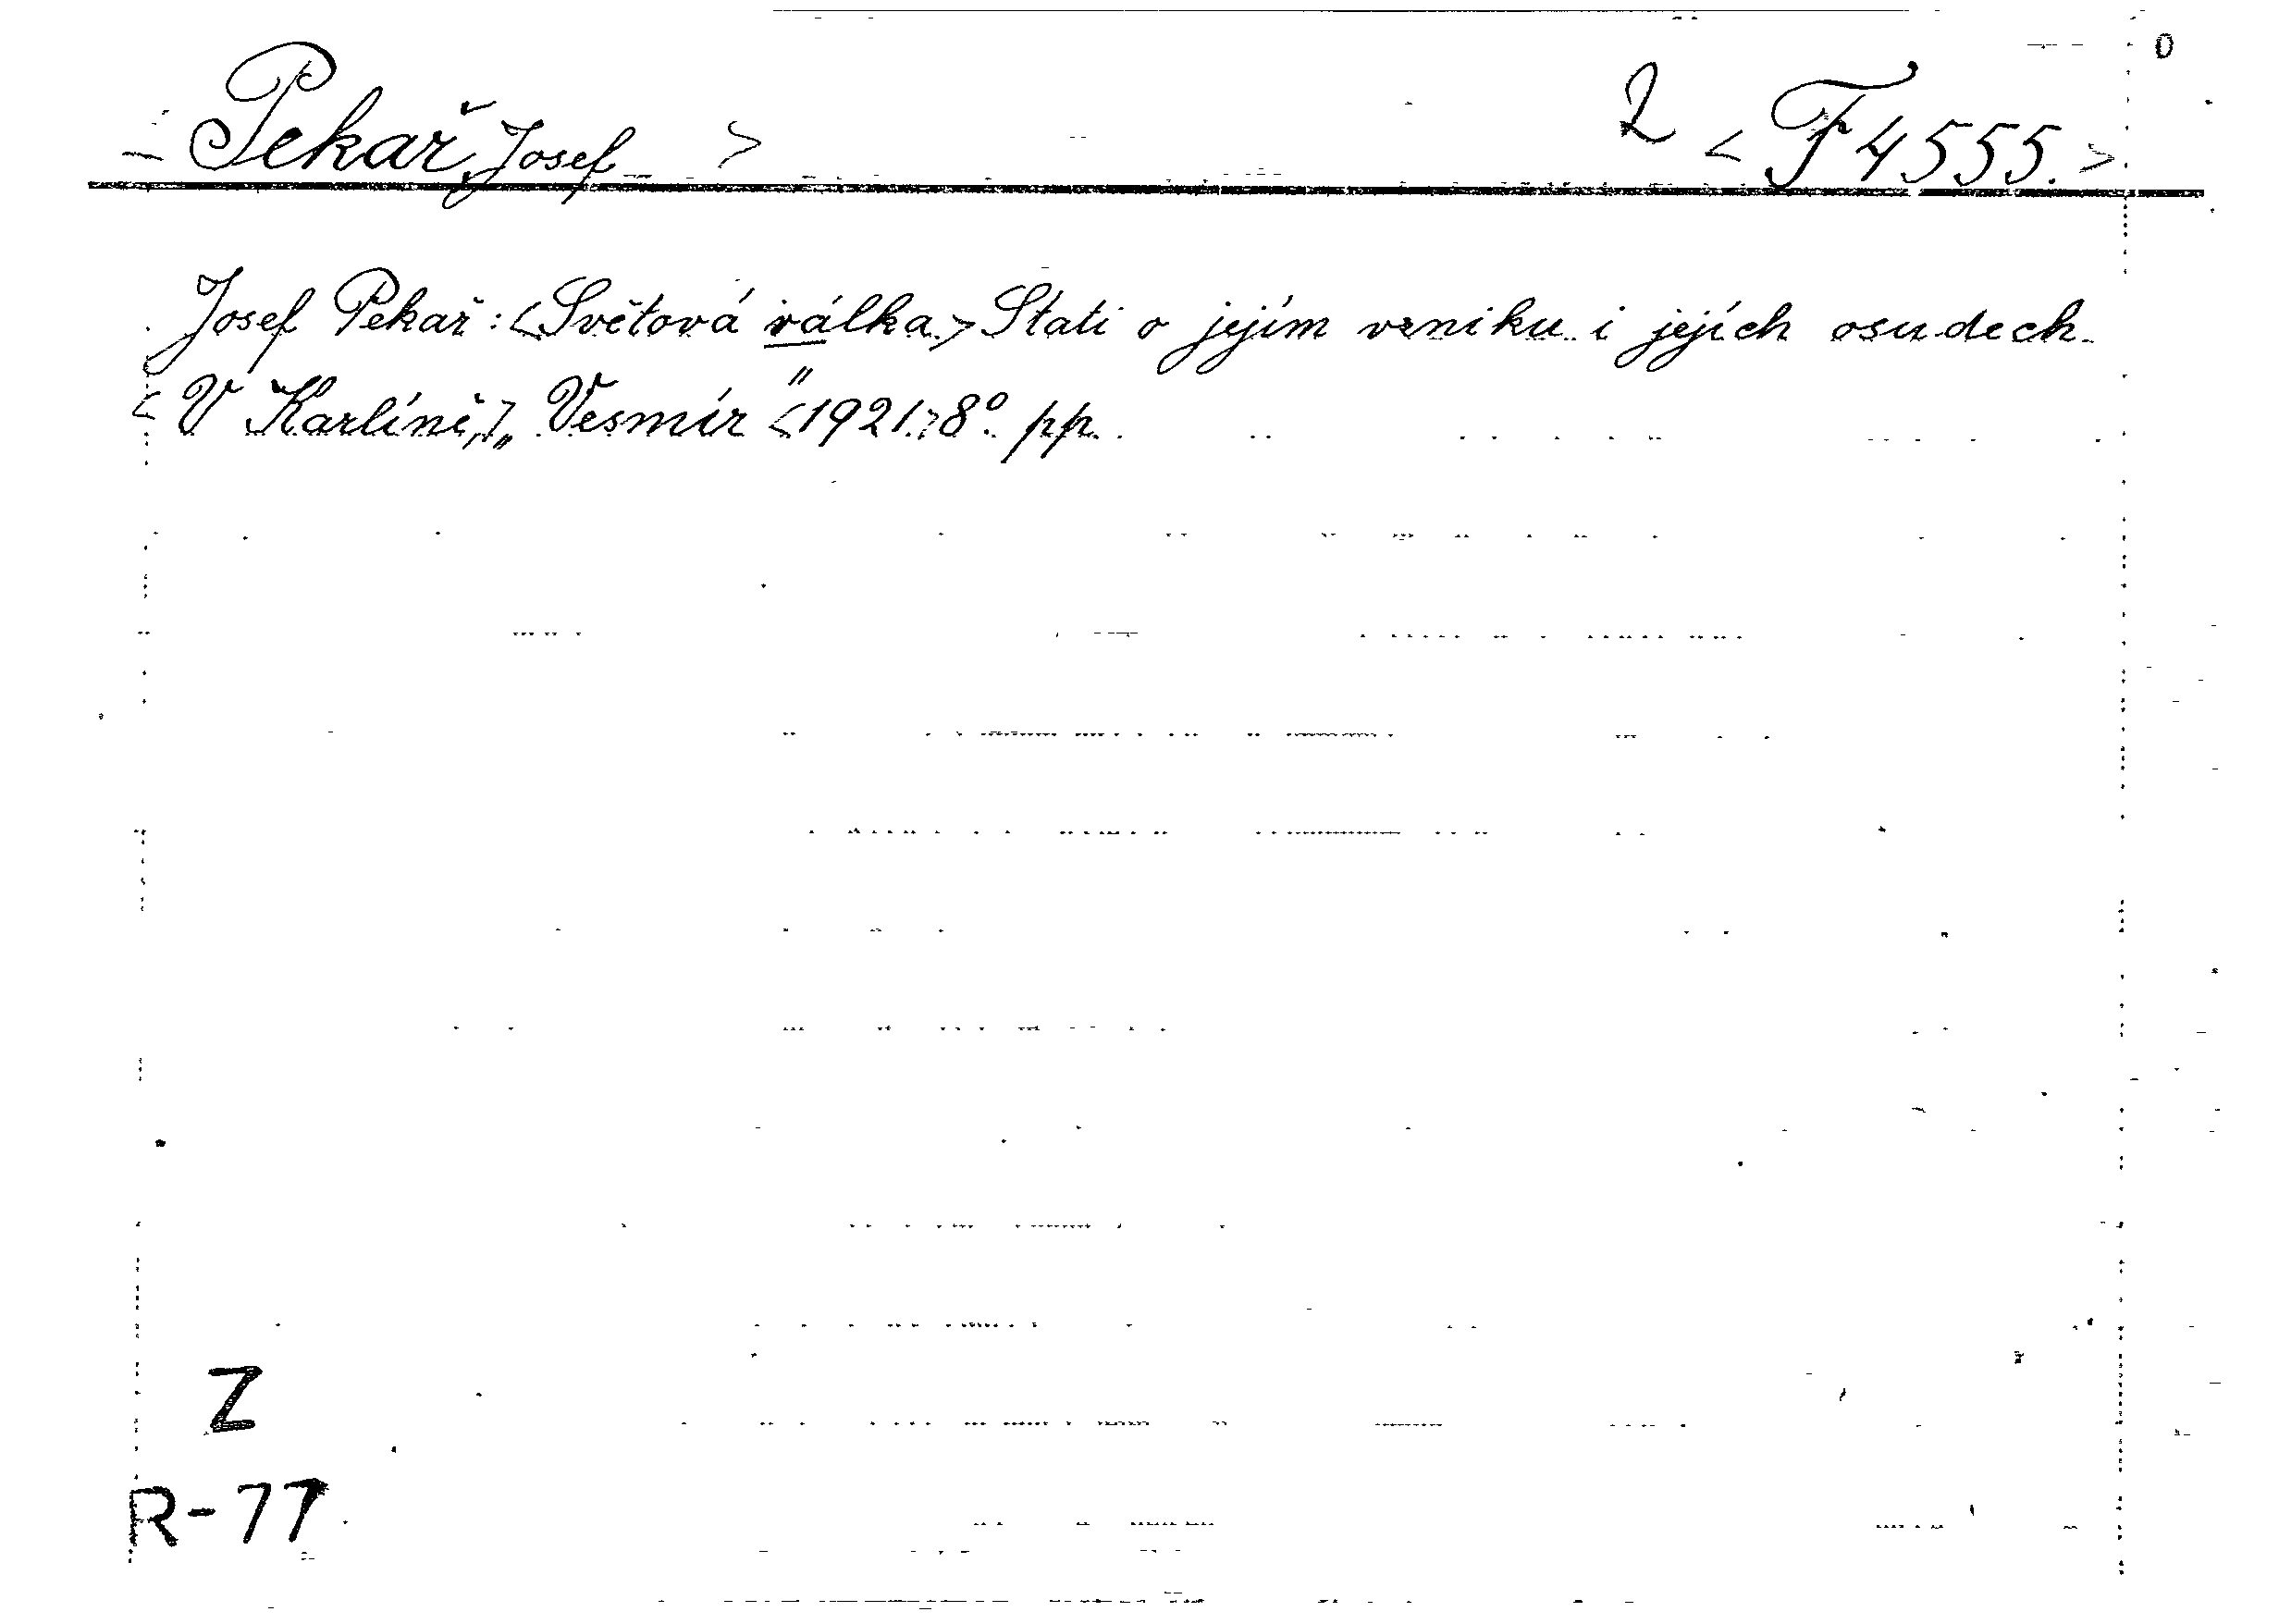 <Pekař, Josef> 2 <F 4555.> 0
Josef Pekař: <Světová válka.> Stati o jejím vzniku i jejích osudech.
<V Karlíně,> „Vesmír" <1921.> 8° pp.
Z
R-77